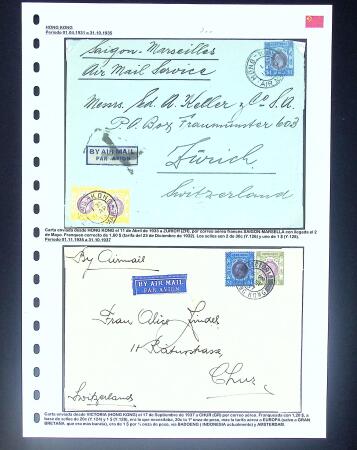 HONG KONG
Periodo 01.04.1931 a 31.10.1935
Saigon-Marseilles
Air Mail Service
Messrs. Ed. A. Keller & Co. S.A.
P.O. Box Fraumünster 603
Zürich
Switzerland
BY AIR MAIL
PAR AVION
Carta enviada desde HONG KONG el 11 de Abril de 1935 a ZURICH (ZH), por correo aéreo francés SAIGON-MARSELLA con llegada el 2
de Mayo. Franqueo correcto de 1,60 $ (tarifa del 23 de Diciembre de 1932). Los sellos son 2 de 30c (Y.126) y uno de 1 $ (Y.128).
Periodo 01.11.1935 a 31.10.1937
By Airmail
BY AIR MAIL
PAR AVION
Frau Alice
11
Chur
Switzerland
Carta enviada desde VICTORIA (HONG KONG) el 17 de Septiembre de 1937 a CHUR (GR) por correo aéreo. Franqueada con 1,20 $, a
base de sellos de 20c (Y.124) y 1 $ (Y.128), era lo que necesitaba, 20c la 1ª onza de peso, mas la tarifa aérea a EUROPA (salvo a GRAN
BRETAÑA que era mas barata), era de 1 $ por ½ onza de peso, vía BADOENG (INDONESIA actualmente) y AMSTERDAM.